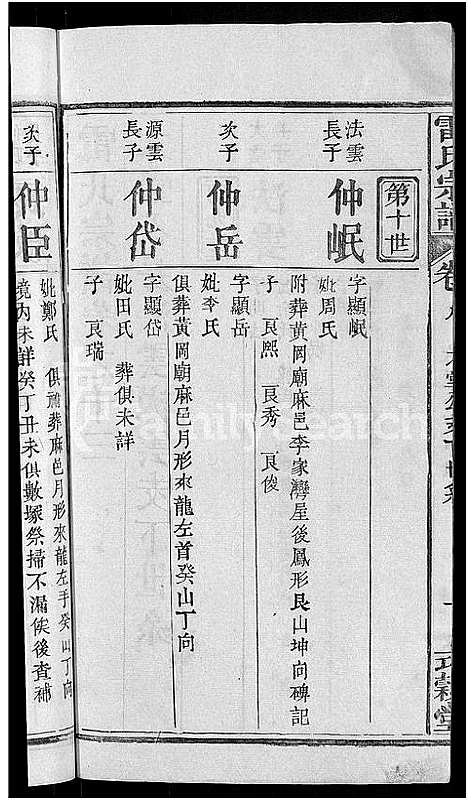 雷氏宗譜
卷
第十世
法雲長子
仲岷
字顯岷
妣周氏
附葬黃岡廟麻邑李家灣屋後鳳形艮山坤向碑記
子 良熙 良秀 良俊
次子
仲岳
字顯岳
妣李氏
俱葬黃岡廟麻邑月形來龍左首癸山丁向
源雲長子
仲岱
字顯岱
妣田氏 葬俱未詳
子 良瑞
次子
仲臣
妣鄭氏 俱祔葬麻邑月形來龍左手癸山丁向
境內未詳癸丁丑未俱數塚祭掃不漏俟後查補
FamilySearch